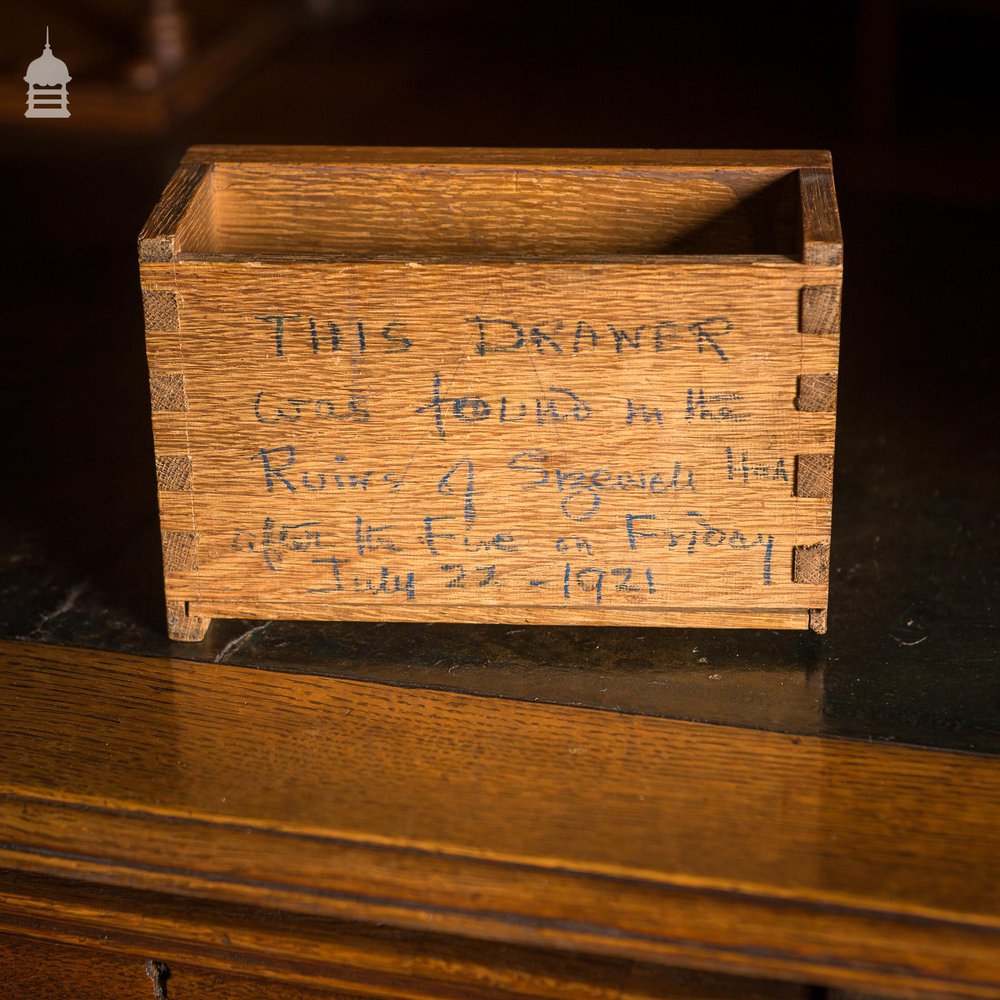 THIS DRAWER
was found in the
Ruins of Sizewell Hall
after the Fire on Friday
July 22 - 1921